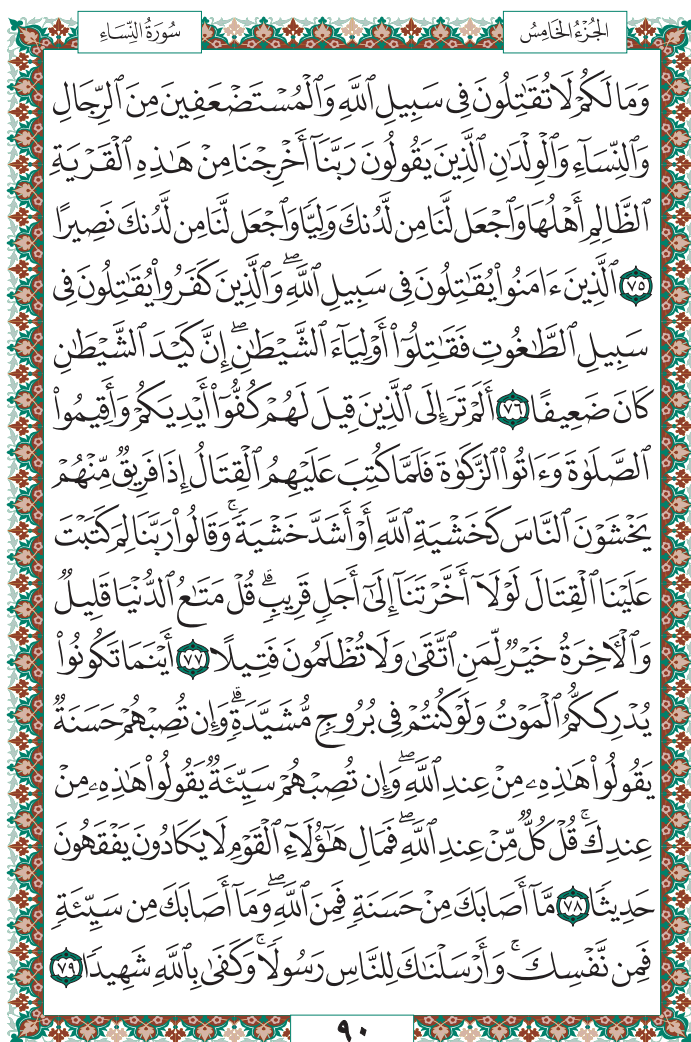 الجُزْءُ الخَامِسُ
سُورَةُ النِّسَاءِ
وَمَا لَكُمْ لَا تُقَٰتِلُونَ فِى سَبِيلِ ٱللَّهِ وَٱلْمُسْتَضْعَفِينَ مِنَ ٱلرِّجَالِ
وَٱلنِّسَآءِ وَٱلْوِلْدَٰنِ ٱلَّذِينَ يَقُولُونَ رَبَّنَآ أَخْرِجْنَا مِنْ هَٰذِهِ ٱلْقَرْيَةِ
ٱلظَّالِمِ أَهْلُهَا وَٱجْعَل لَّنَا مِن لَّدُنكَ وَلِيًّا وَٱجْعَل لَّنَا مِن لَّدُنكَ نَصِيرًا
٧٥ ٱلَّذِينَ ءَامَنُوا۟ يُقَٰتِلُونَ فِى سَبِيلِ ٱللَّهِۖ وَٱلَّذِينَ كَفَرُوا۟ يُقَٰتِلُونَ فِى
سَبِيلِ ٱلطَّٰغُوتِ فَقَٰتِلُوٓا۟ أَوْلِيَآءَ ٱلشَّيْطَٰنِۖ إِنَّ كَيْدَ ٱلشَّيْطَٰنِ
كَانَ ضَعِيفًا ٧٦ أَلَمْ تَرَ إِلَى ٱلَّذِينَ قِيلَ لَهُمْ كُفُّوٓا۟ أَيْدِيَكُمْ وَأَقِيمُوا۟
ٱلصَّلَوٰةَ وَءَاتُوا۟ ٱلزَّكَوٰةَ فَلَمَّا كُتِبَ عَلَيْهِمُ ٱلْقِتَالُ إِذَا فَرِيقٌ مِّنْهُمْ
يَخْشَوْنَ ٱلنَّاسَ كَخَشْيَةِ ٱللَّهِ أَوْ أَشَدَّ خَشْيَةًۚ وَقَالُوا۟ رَبَّنَا لِمَ كَتَبْتَ
عَلَيْنَا ٱلْقِتَالَ لَوْلَآ أَخَّرْتَنَآ إِلَىٰٓ أَجَلٍ قَرِيبٍۗ قُلْ مَتَٰعُ ٱلدُّنْيَا قَلِيلٌ
وَٱلْءَاخِرَةُ خَيْرٌ لِّمَنِ ٱتَّقَىٰ وَلَا تُظْلَمُونَ فَتِيلًا ٧٧ أَيْنَمَا تَكُونُوا۟
يُدْرِككُّمُ ٱلْمَوْتُ وَلَوْ كُنتُمْ فِى بُرُوجٍ مُّشَيَّدَةٍۗ وَإِن تُصِبْهُمْ حَسَنَةٌ
يَقُولُوا۟ هَٰذِهِۦ مِنْ عِندِ ٱللَّهِۖ وَإِن تُصِبْهُمْ سَيِّئَةٌ يَقُولُوا۟ هَٰذِهِۦ مِنْ
عِندِكَۚ قُلْ كُلٌّ مِّنْ عِندِ ٱللَّهِۖ فَمَالِ هَٰٓؤُلَآءِ ٱلْقَوْمِ لَا يَكَادُونَ يَفْقَهُونَ
حَدِيثًا ٧٨ مَّآ أَصَابَكَ مِنْ حَسَنَةٍ فَمِنَ ٱللَّهِۖ وَمَآ أَصَابَكَ مِن سَيِّئَةٍ
فَمِن نَّفْسِكَۚ وَأَرْسَلْنَٰكَ لِلنَّاسِ رَسُولًاۚ وَكَفَىٰ بِٱللَّهِ شَهِيدًا ٧٩
٩٠